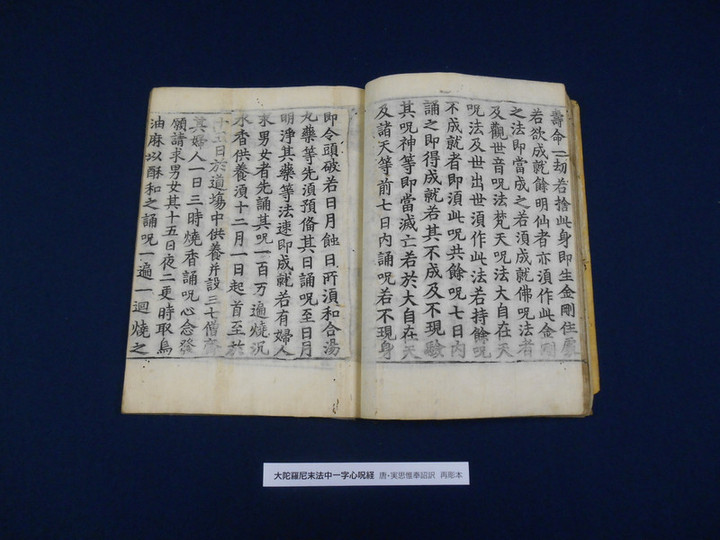 壽命一劫若捨此身即生金剛住處
若欲成就餘明仙者亦須作此金剛
之法即當成之若須成就佛呪法者
及觀世音呪法梵天呪法大自在天
呪法及世出世須作此法若持餘呪
不成就者即須此呪共餘呪七日内
誦之即得成就若其不成及不現驗
其呪神等即當滅亡若於大自在天
及諸天等前七日内誦呪若不現身
即令頭破若日月蝕日所須和合湯
丸藥等先須預俻其日誦呪至日月
明淨其藥等法速即成就若有婦人
求男女者先誦其呪一百万遍燒沉
水香供養須十二月一日起首至於
十五日於道場中供養并設三七僧齋
其婦人一日三時燒香誦呪心念發
願請求男女其十五日夜二更時取烏
油麻以酥和之誦呪一遍一迴燒之
大陀羅尼末法中一字心呪経 唐・実思惟奉詔訳 再彫本